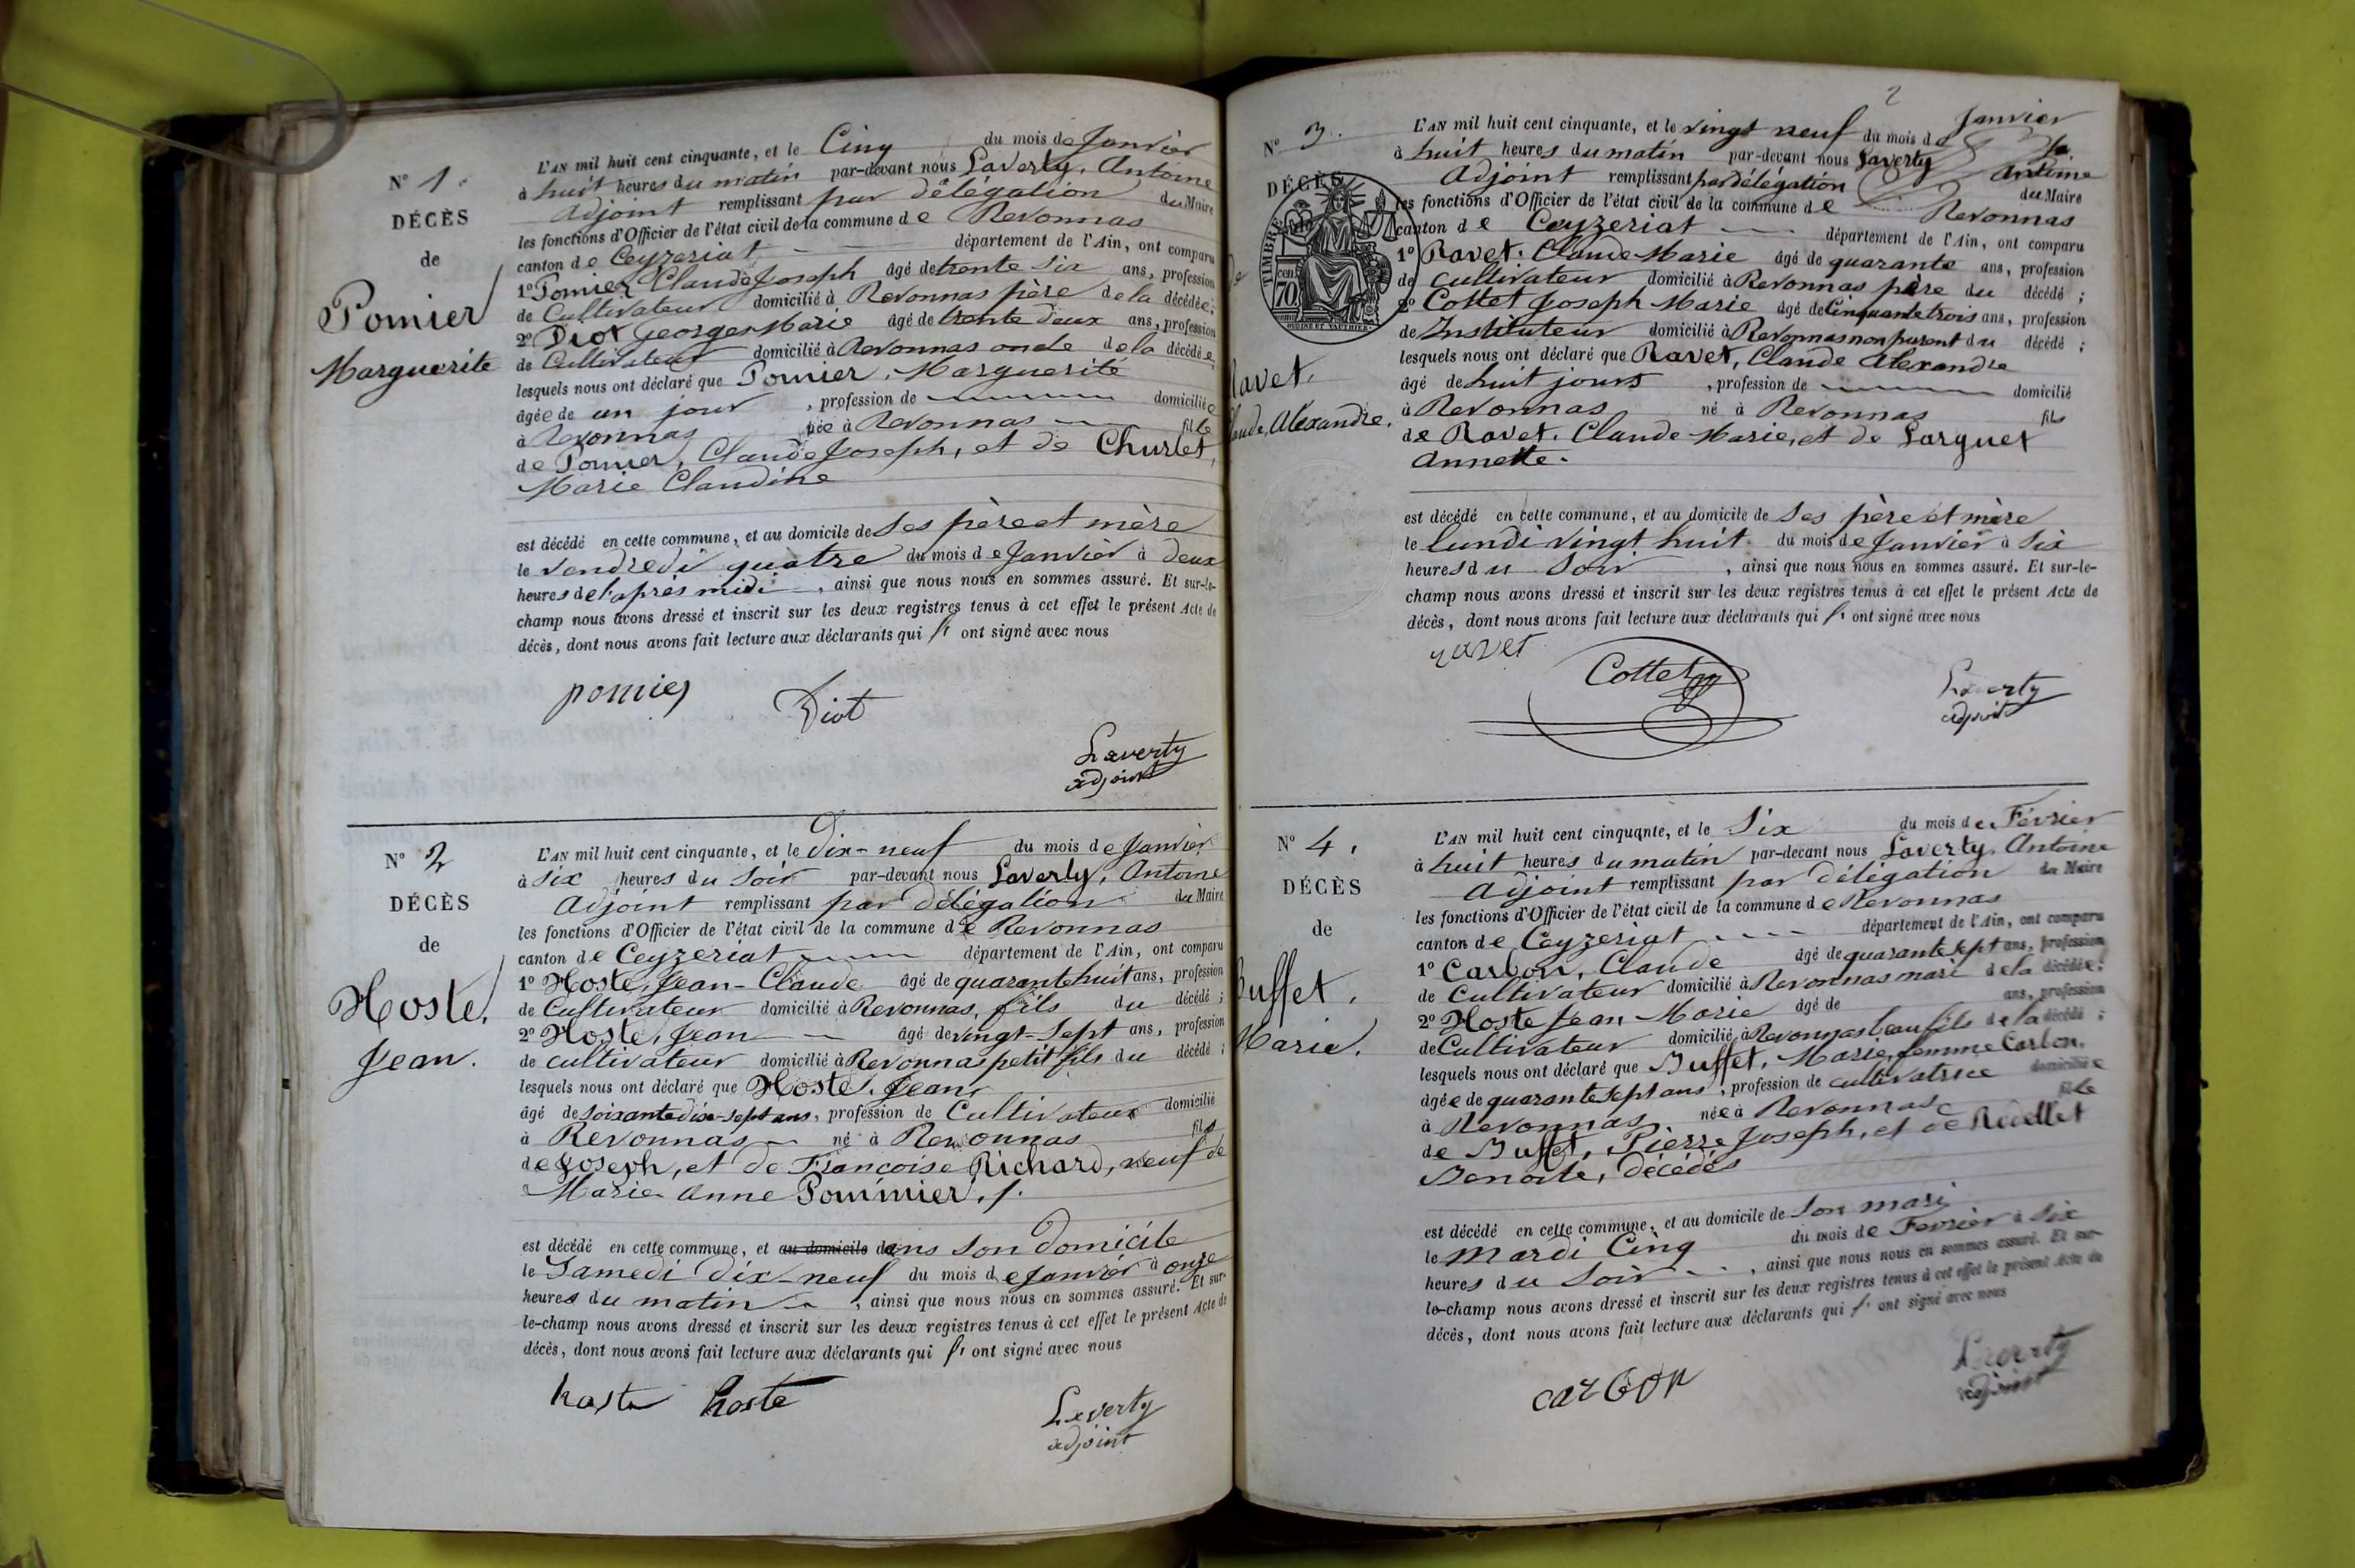 N° 1.
DÉCÈS
de
Pomier
Marguerite
L'AN mil huit cent cinquante, et le Cinq du mois de Janvier
à huit heures du matin par-devant nous Laverty, Antoine
Adjoint remplissant par délégation du Maire
les fonctions d'Officier de l'état civil de la commune de Revonnas
canton de Ceyzeriat département de l'Ain, ont comparu
1° Pomier, Claude Joseph âgé de trente six ans, profession
de Cultivateur domicilié à Revonnas père de la décédée;
2° Diot George Marie âgé de trente deux ans, profession
de Cultivateur domicilié à Revonnas oncle de la décédée
lesquels nous ont déclaré que Pomier, Marguerite
âgée de un jour, profession de domiciliée
à Revonnas née à Revonnas fille
de Pomier, Claude Joseph, et de Churlet,
Marie Claudine
est décédé en cette commune, et au domicile de Ses père et mère
le vendredi quatre du mois de Janvier à deux
heures de l'après midi, ainsi que nous nous en sommes assuré. Et sur-le-
champ nous avons dressé et inscrit sur les deux registres tenus à cet effet le présent Acte de
décès, dont nous avons fait lecture aux déclarants qui ont signé avec nous
pomier Diot
Laverty
adjoint
N° 2
DÉCÈS
de
Hoste,
Jean.
L'AN mil huit cent cinquante, et le Dix-neuf du mois de Janvier
à six heures du soir par-devant nous Laverty, Antoine
Adjoint remplissant par délégation du Maire
les fonctions d'Officier de l'état civil de la commune de Revonnas
canton de Ceyzeriat département de l'Ain, ont comparu
1° Hoste, Jean-Claude âgé de quarante huit ans, profession
de Cultivateur domicilié à Revonnas, fils du décédé;
2° Hoste, Jean âgé de vingt-sept ans, profession
de cultivateur domicilié à Revonnas petit fils du décédé;
lesquels nous ont déclaré que Hoste, Jean
âgé de soixante dix-sept ans, profession de Cultivateur domicilié
à Revonnas né à Revonnas fils
de Joseph, et de Françoise Richard, veuf de
Marie Anne Pommier.
est décédé en cette commune, et au domicile dans son domicile
le Samedi dix-neuf du mois de Janvier à onze
heures du matin, ainsi que nous nous en sommes assuré. Et sur-
le-champ nous avons dressé et inscrit sur les deux registres tenus à cet effet le présent Acte de
décès, dont nous avons fait lecture aux déclarants qui ont signé avec nous
hoste hoste
Laverty
adjoint
2
N° 3.
DÉCÈS
TIMBRE
cen
70
Ravet,
Claude, Alexandre.
L'AN mil huit cent cinquante, et le vingt neuf du mois de Janvier
à huit heures du matin par-devant nous Laverty Antoine
Adjoint remplissant par délégation du Maire
les fonctions d'Officier de l'état civil de la commune de Revonnas
canton de Ceyzeriat département de l'Ain, ont comparu
1° Ravet. Claude Marie âgé de quarante ans, profession
de cultivateur domicilié à Revonnas père du décédé;
2° Cottet Joseph Marie âgé de Cinquante trois ans, profession
de Instituteur domicilié à Revonnas non parent du décédé;
lesquels nous ont déclaré que Ravet, Claude Alexandre
âgé de huit jours, profession de domicilié
à Revonnas né à Revonnas fils
de Ravet. Claude Marie, et de Larguet
Annette.
est décédé en cette commune, et au domicile de Ses père et mère
le lundi vingt huit du mois de Janvier à Six
heures du Soir, ainsi que nous nous en sommes assuré. Et sur-le-
champ nous avons dressé et inscrit sur les deux registres tenus à cet effet le présent Acte de
décès, dont nous avons fait lecture aux déclarants qui ont signé avec nous
ravet
Cottet
Laverty
adjoint
N° 4.
DÉCÈS
de
Buffet,
Marie.
L'AN mil huit cent cinquante, et le Six du mois de Février
à huit heures du matin par-devant nous Laverty, Antoine
Adjoint remplissant par délégation du Maire
les fonctions d'Officier de l'état civil de la commune de Revonnas
canton de Ceyzeriat département de l'Ain, ont comparu
1° Carbon, Claude âgé de quarante sept ans, profession
de Cultivateur domicilié à Revonnas mari de la décédée;
2° Hoste Jean Marie âgé de ans, profession
de Cultivateur domicilié à Revonnas beau fils de la décédé;
lesquels nous ont déclaré que Buffet, Marie, femme Carbon,
âgée de quarante sept ans, profession de cultivatrice domiciliée
à Revonnas, née à Revonnas fille
de Buffet, Pierre Joseph, et de Révellet
Benoite, décédés
est décédé en cette commune, et au domicile de Son mari
le Mardi Cinq du mois de Fevrier à Six
heures du Soir, ainsi que nous nous en sommes assuré. Et sur-
le-champ nous avons dressé et inscrit sur les deux registres tenus à cet effet le présent Acte de
décès, dont nous avons fait lecture aux déclarants qui ont signé avec nous
carbon
Laverty
adjoint